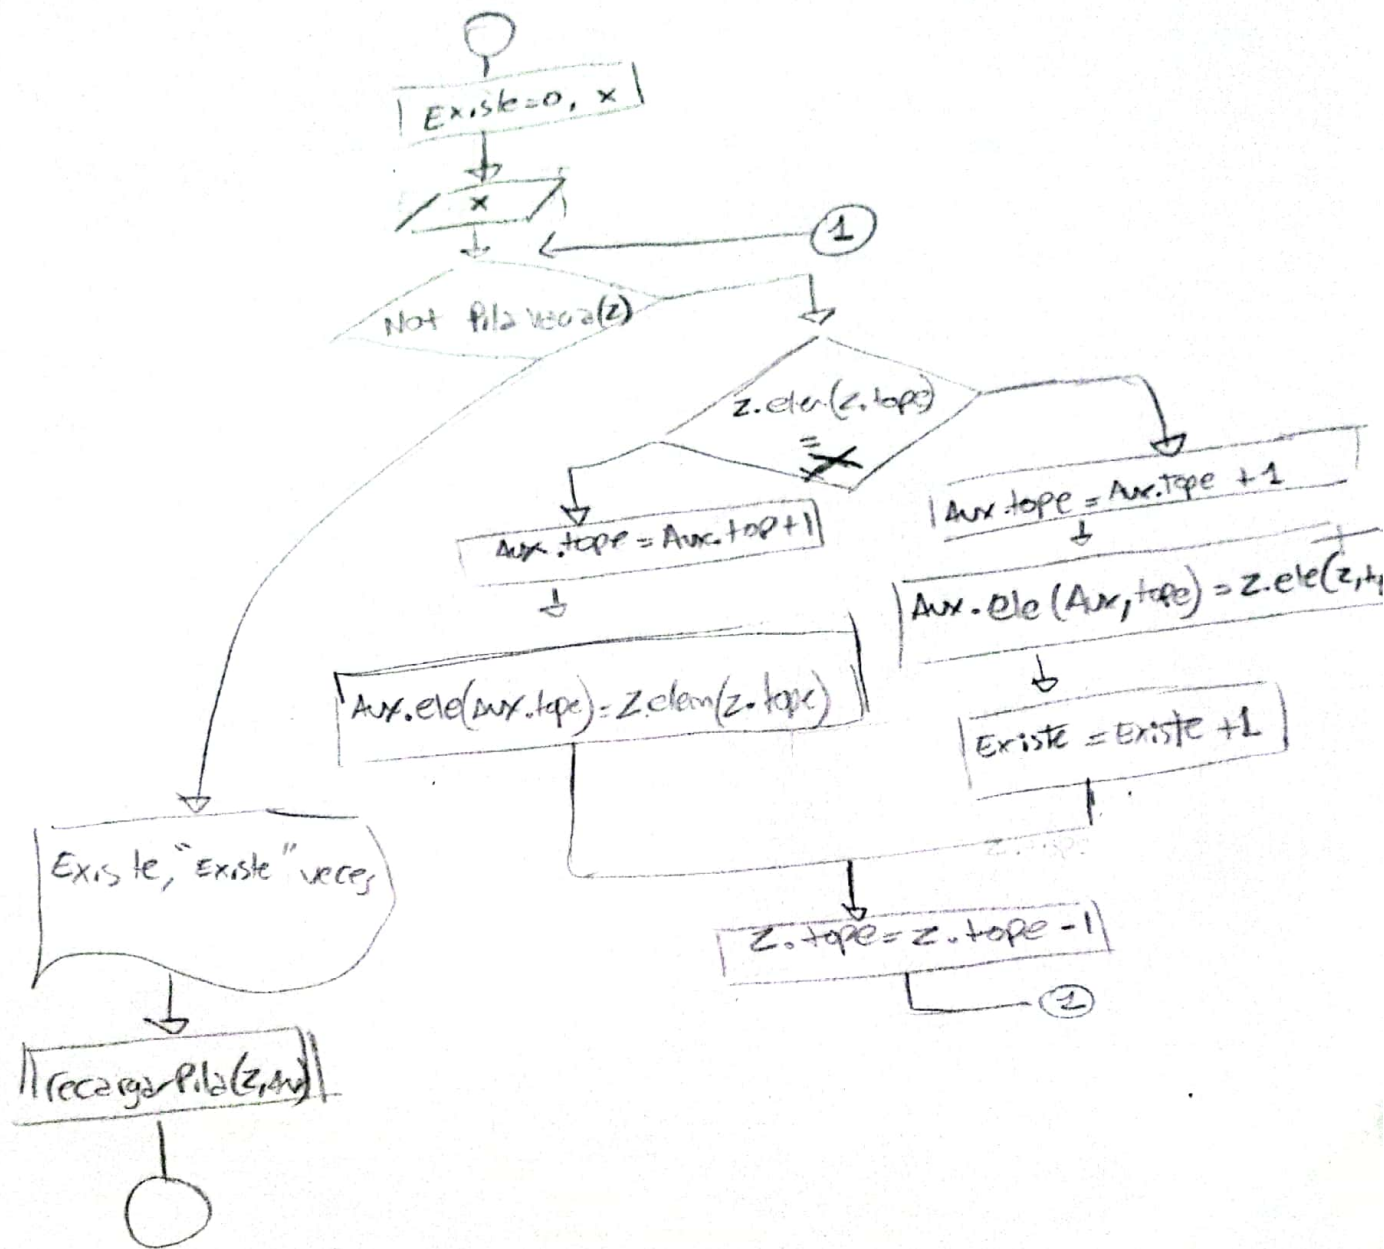 Existe=0, x
x
1
Not Pila vacia(z)
z.elem(z.tope)
=
x
Aux.tope = Aux.top+1
Aux.ele(Aux.tope)=z.elem(z.tope)
Aux.tope = Aux.tope +1
Aux.ele(Aux,tope)=z.ele(z,tp
Existe =Existe +1
z.tope=z.tope-1
1
Existe,"Existe" veces
recargarPila(z,Aux)